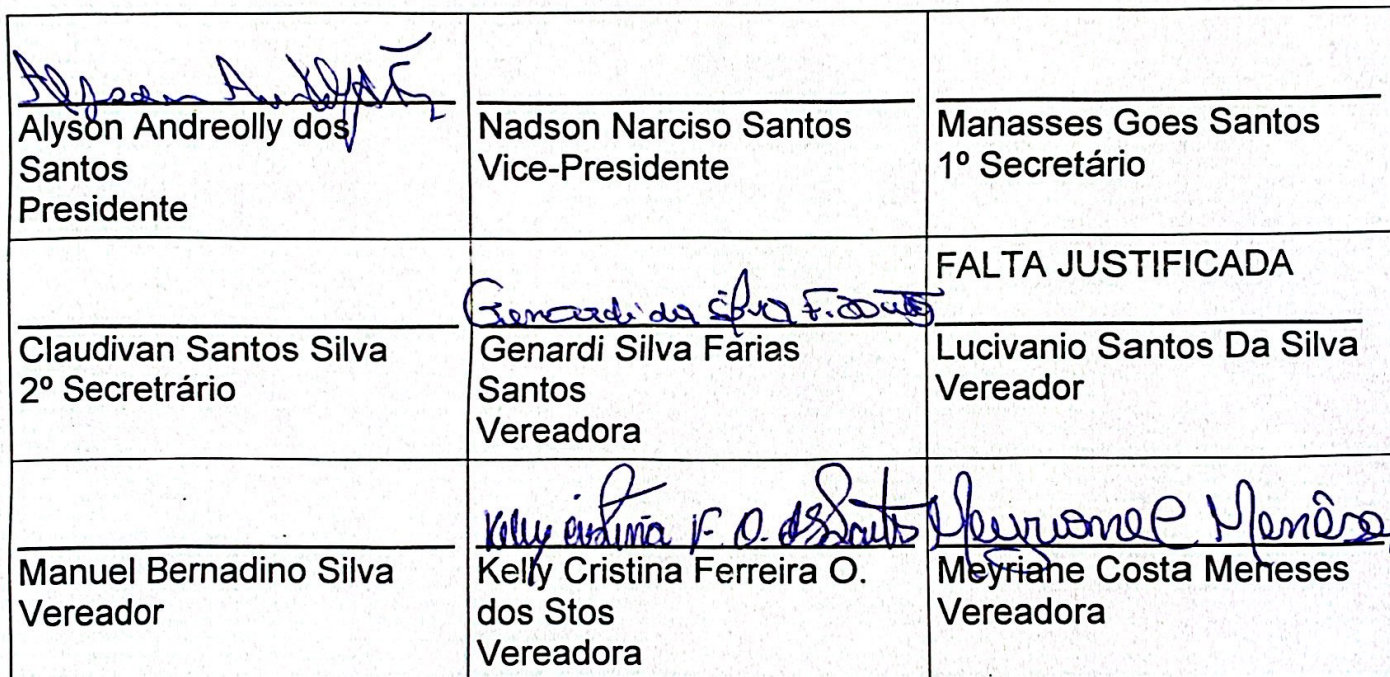 Alyson Andreolly dos
Santos
Presidente
Nadson Narciso Santos
Vice-Presidente
Manasses Goes Santos
1º Secretário
Claudivan Santos Silva
2º Secretrário
Genardi da Silva F. Santos
Genardi Silva Farias
Santos
Vereadora
FALTA JUSTIFICADA
Lucivanio Santos Da Silva
Vereador
Manuel Bernadino Silva
Vereador
Kelly Cristina F. O. dos Santos
Kelly Cristina Ferreira O.
dos Stos
Vereadora
Meyriane C Menêses
Meyriane Costa Meneses
Vereadora